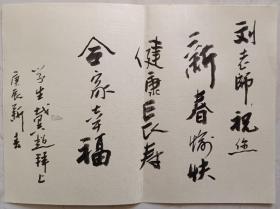 刘老師祝您
新春愉快
健康長寿
合家幸福
学生賀超拜上
庚辰新春